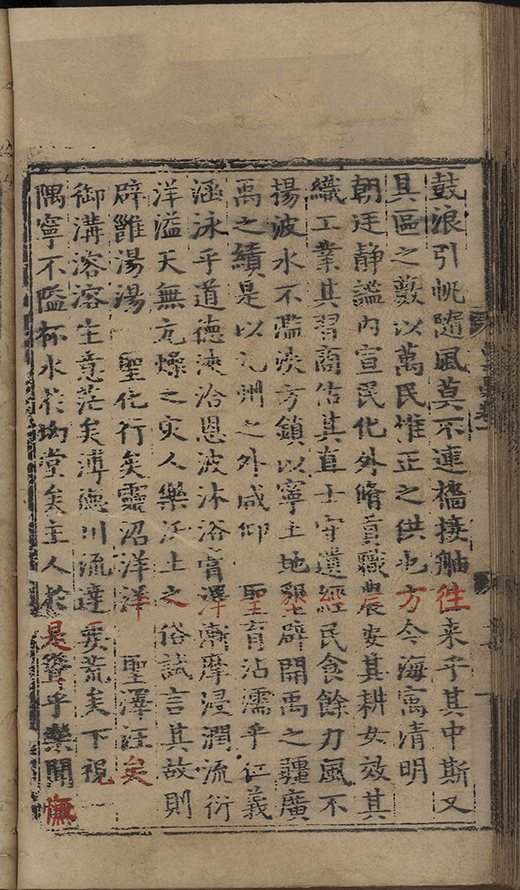 鼓浪引帆隨風莫不連檣接舳徃来乎其中斯又
具區之藪以萬民惟正之供也方今海㝢清明
朝廷静謐内宣民化外脩貢職農安其耕女效其
織工業其習商估其直士守遺經民食餘力風不
揚波水不濫涘方鎮以寧土地墾辟開禹之疆廣
禹之績是以九州之外咸仰 聖育沾濡乎仁義
涵泳乎道德浹洽恩波沐浴膏澤漸摩浸潤流衍
洋溢天無亢燥之灾人樂沃土之俗試言其故則
辟雝湯湯 聖化行矣靈沼洋洋 聖澤汪矣
御溝溶溶生意茫矣溥德川流達要荒矣下視
隅寧不隘杯水扵坳堂矣主人扵是聳乎樂聞憮